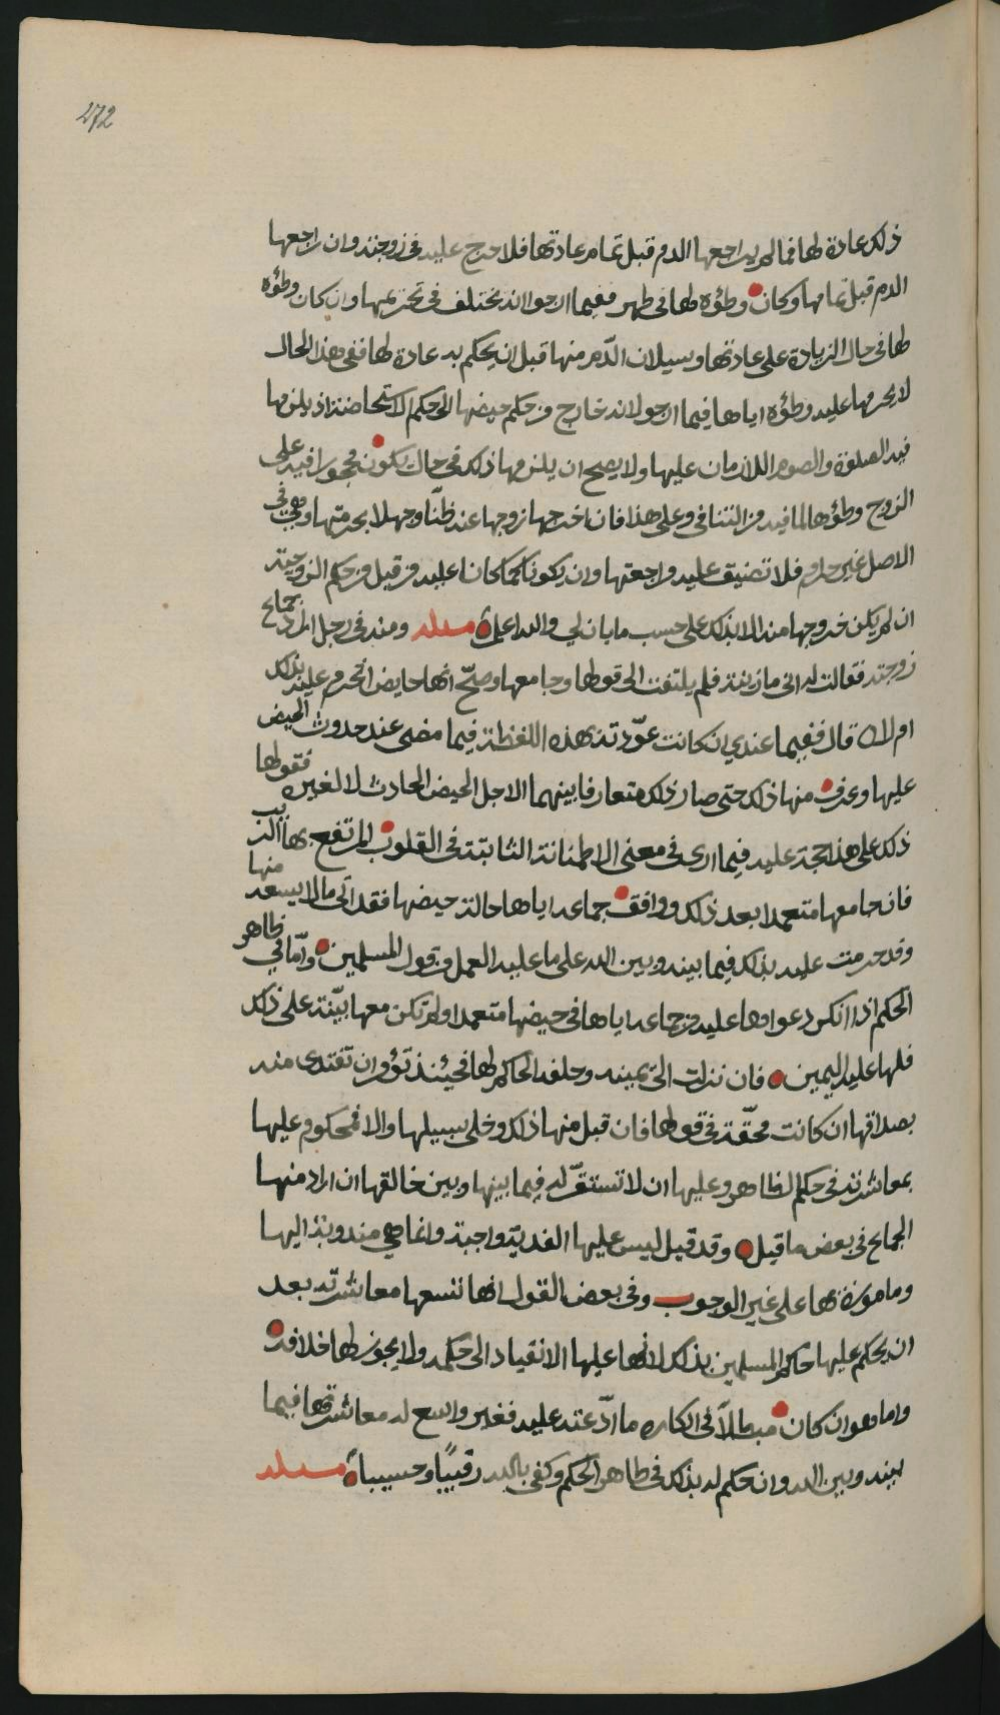 272
ذلك عادة لها فما لم يراجعها الدم قبل تمام عادتها فلا حرج عليه في زوجته وان راجعها
الدم قبل تمامها وكان وطؤه لها في طهر ففيما ارجو انه يختلف في تحريمها وان كان وطؤه
لها في حال الزيادة على عادتها وسيلان الدم منها قبل ان يحكم به عادة لها ففي هذا الحال
لا يحرمها عليه وطؤه اياها فيما ارجو لانه خارج من حكم حيضها الى حكم الاستحاضة اذ يلزمها
فيه الصلوة والصوم اللازمان عليها ولا يصح ان يلزمها ذلك في حال تكون محجورا فيه على
الزوج وطؤها لما فيه من التنافي وعلى هذا فان اخرجها زوجها عنه ظنا وجهلا بحرمتها وهي في
الاصل غير حرام فلا تضييق عليه مراجعتها وان يكونا كما كانا عليه من قبل من حكم الزوجية
ان لم يكن خروجها منه الا بذلك على حسب ما بان لي والله اعلم مسئله ومنه في رجل اراد جماع
زوجته فقالت له اني ما زينة فلم يلتفت الى قولها وجامعها وصح انها حايض اتحرم عليه بذلك
ام لا قال ففيما عندي ان كانت عودته بهذه اللفظة فيما مضى عند حدوث الحيض
عليها وعرف منها ذلك حتى صار ذلك متعارفا بينهما لاجل الحيض الحادث لا لغيره فقولها
ذلك على هذا حجة عليه فيما ارى في معنى الاطمئنانة الثابتة في القلوب المرتفع بها الريب
فان جامعها متعمدا بعد ذلك ووافق جماعه اياها حالة حيضها فقد اتى ما لا يسعه منها
وقد حرمت عليه بذلك فيما بينه وبين الله على ما عليه العمل من قول المسلمين واما في ظاهر
الحكم اذا انكر دعواها عليه من جماعه اياها في حيضها متعمدا ولم تكن معها بينة على ذلك
فلها عليه اليمين فان نزلت الى يمينه وحلفه الحاكم لها فحينئذ تؤمر ان تفتدى منه
بصداقها ان كانت محقة في قولها فان قبل منها ذلك وخلى سبيلها والا فمحكوم عليها
بمعاشرته في حكم الظاهر وعليها ان لا تستقر له فيما بينها وبين خالقها ان اراد منها
الجماع في بعض ما قيل وقد قيل ليس عليها الفدية واجبة وانما هي مندوبة اليها
ومامورة بها على غير الوجوب وفي بعض القول انها تسعها معاشرته بعد
ان يحكم عليها حاكم المسلمين بذلك لانها عليها الانقياد الى حكمه ولا يجوز لها خلافه
واما هو ان كان مبطلا في انكاره ما ادعته عليه فغير واسع له معاشرتها فيما
بينه وبين الله وان حكم له بذلك في ظاهر الحكم وكفى بالله رقيبا وحسيبا مسئله